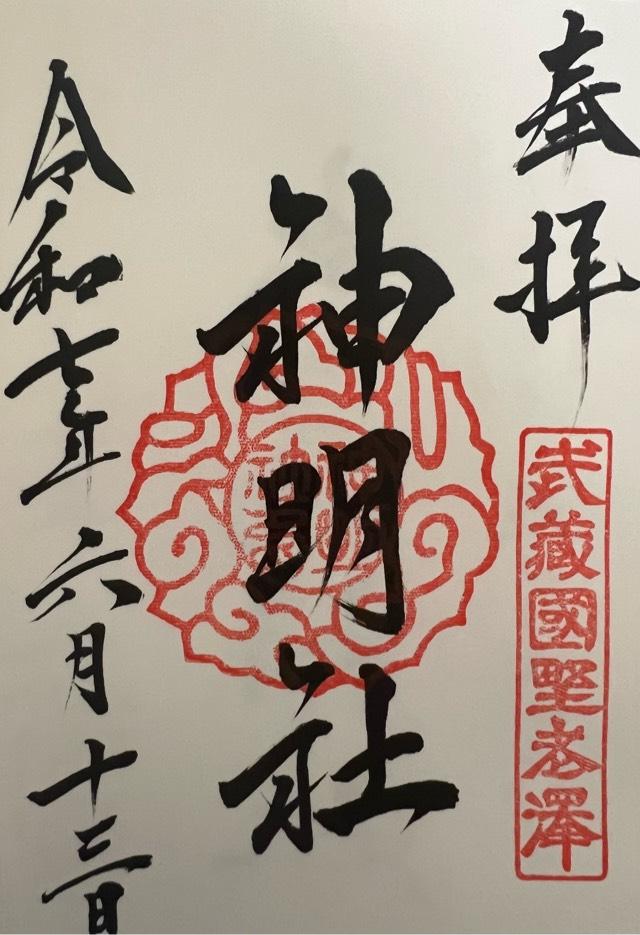 奉拝
武藏國野老澤
神明社
令和七年六月十三日